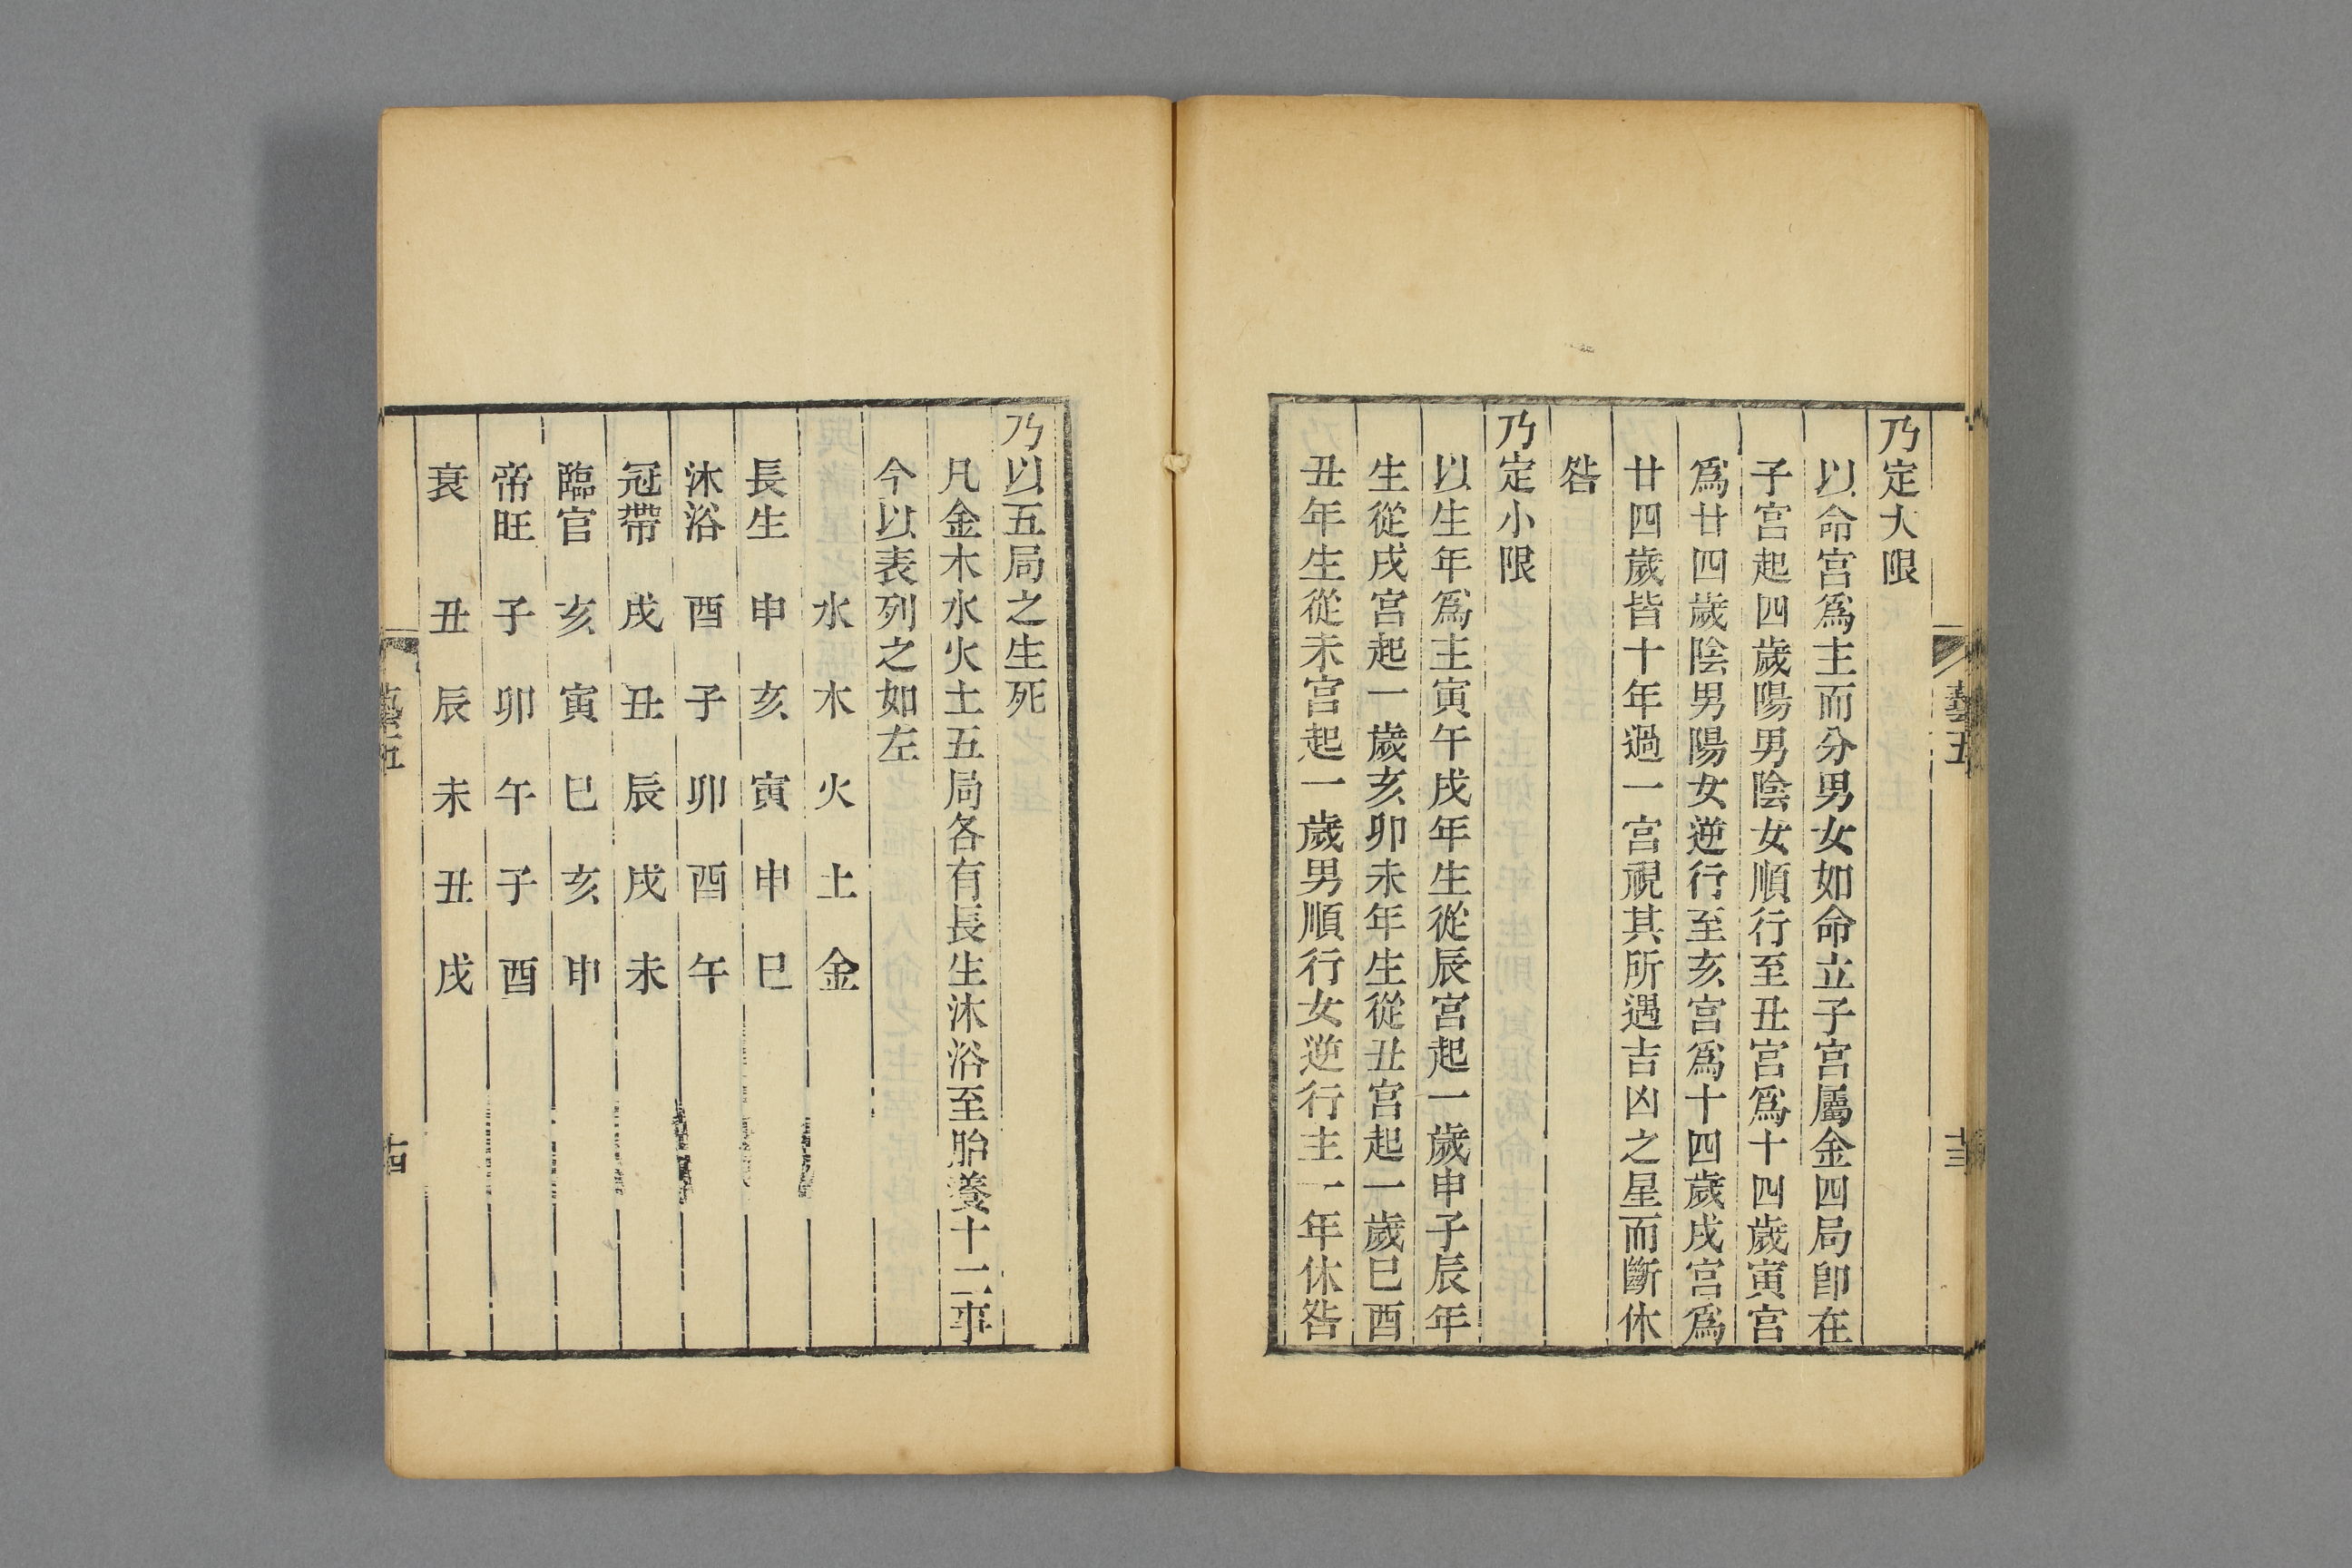 藝五
乃定大限
以命宮爲主而分男女如命立子宮屬金四局卽在
子宮起四歲陽男陰女順行至丑宮爲十四歲寅宮
爲廿四歲陰男陽女逆行至亥宮爲十四歲戌宮爲
廿四歲皆十年過一宮視其所遇吉凶之星而斷休
咎
乃定小限
以生年爲主寅午戌年生從辰宮起一歲申子辰年
生從戌宮起一歲亥卯未年生從丑宮起一歲巳酉
丑年生從未宮起一歲男順行女逆行主一年休咎
乃以五局之生死
凡金木水火土五局各有長生沐浴至胎養十二事
今以表列之如左
水 木 火 土 金
長生 申 亥 寅 申 巳
沐浴 酉 子 卯 酉 午
冠帶 戌 丑 辰 戌 未
臨官 亥 寅 巳 亥 申
帝旺 子 卯 午 子 酉
衰 丑 辰 未 丑 戌
藝五 十四